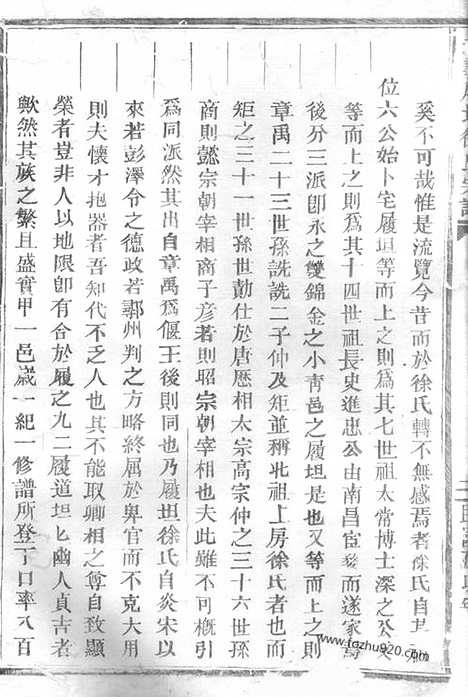 奚不可哉惟是流覽今昔而於徐氏轉不無感焉者徐氏自其
位六公始卜宅履坦等而上之則爲其七世祖太常博士深之公
等而上之則爲其十四世祖長史進忠公由南昌宦婺而遂家
後分三派卽永之雙錦金之小青邑之履坦是也又等而上之則
章禹二十三世孫詵詵二子仲及矩並稱北祖上房徐氏者也而
矩之三十一世孫世勣仕於唐歷相太宗高宗仲之三十六世孫
商則懿宗朝宰相商子彥若則昭宗朝宰相也夫此雖不可槪引
爲同派然其出自章禹爲偃王後則同也乃履坦徐氏自炎宋以
來若彭澤令之德政若鄆州判之方略終屬於卑官而不克大用
則夫懷才抱器者吾知代不乏人也其不能取卿相之尊自致顯
榮者豈非人以地限卽有合於履之九二履道坦坦幽人貞吉者
歟然其族之繁且盛實甲一邑歲一紀一修譜所登丁口率八百
www.tezhu920.com